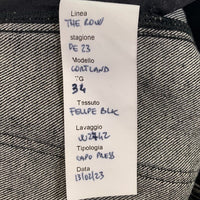 Linea
THE ROW
stagione
PE 23
Modello
CORTLAND
TG
34
Tessuto
FELIPE BLK
Lavaggio
Tipologia
CAPO PRESS
Data
13/02/23